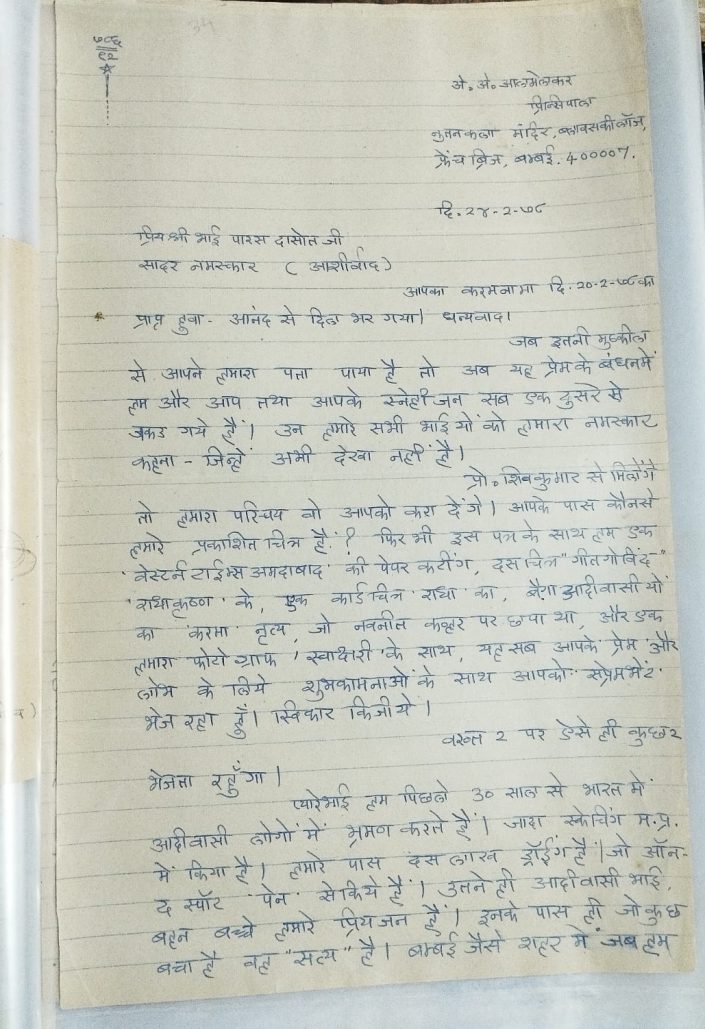 ७८६
९२
34
अे. अे. आलमेलकर
प्रिन्सिपाल
नुतन कला मंदिर, ब्लावसकी लॉज,
फ्रेंच ब्रिज, बम्बई. 400007.
दि. २४-2-७८
प्रिय श्री भाई पारस दासोत जी
सादर नमस्कार ( आशीर्वाद )
आपका करमनामा दि. 20-2-७८ का
प्राप्त हुवा - आनंद से दिल भर गया। धन्यवाद।
जब इतनी मुश्कील
से आपने हमारा पता पाया है तो अब यह प्रेम के बंधनमें
हम और आप तथा आपके स्नेही जन सब एक दुसरे से
जकड गये हैं। उन हमारे सभी भाईयों को हमारा नमस्कार
कहना - जिन्हें अभी देखा नहीं है।
प्रो. शिवकुमार से मिलोंगे
तो हमारा परिचय वो आपको करा देंगे। आपके पास कौनसे
हमारे प्रकाशित चित्र हैं ? फिर भी इस पत्र के साथ हम एक
'वेस्टर्न टाईम्स अमदाबाद' की पेपर कटींग, दस चित्र "गीत गोविंद"
'राधाकृष्ण' के, एक कार्ड चित्र 'राधा' का, बैगा आदीवासीयों
का 'करमा' नृत्य, जो नवनीत कव्हर पर छपा था, और एक
हमारा फोटोग्राफ 'स्वाक्षरी' के साथ, यह सब आपके प्रेम और
लोभ के लिये शुभकामनाओं के साथ आपको सप्रेम भेंट
भेज रहा हुँ। स्विकार किजीये।
वख्त 2 पर ऐसे ही कुछ 2
भेजता रहुँगा।
प्यारे भाई हम पिछले 30 साल से भारत में
आदीवासी लोगों में भ्रमण करते हैं। जादा स्केचिंग म.प्र.
में किया है। हमारे पास दस लाख ड्रॉईंग हैं। जो ऑन-
द स्पॉट 'पेन' से किये हैं। उतने ही आदीवासी भाई,
बहन बच्चे हमारे प्रिय जन हैं। इनके पास ही जो कुछ
बचा है वह "सत्य" है। बम्बई जैसे शहर में जब हम